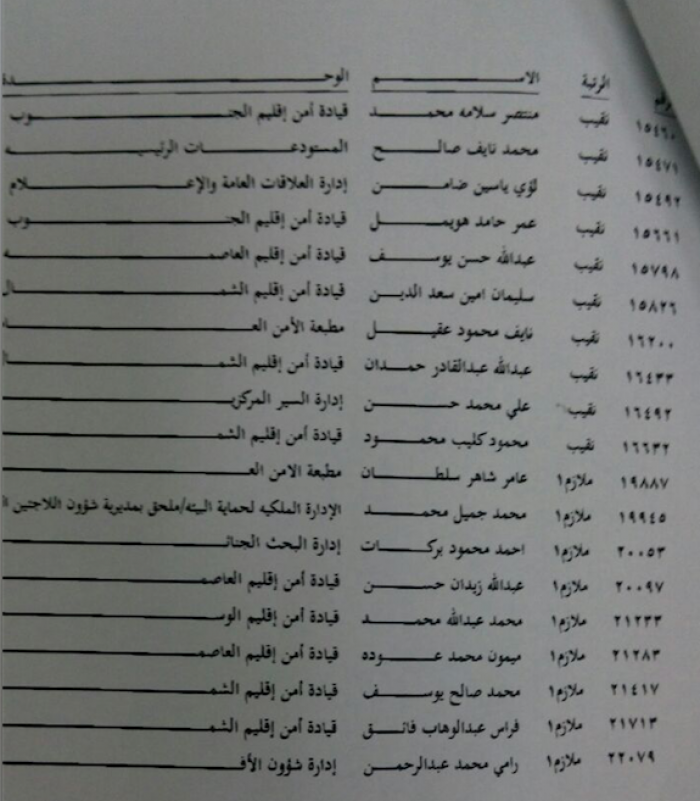 الرتبة الاسم الوحدة
١٥٤٦٠ نقيب منتصر سلامه محمد قيادة أمن إقليم الجنوب
١٥٤٧١ نقيب محمد نايف صالح المستودعات الرئيسيه
١٥٤٩٢ نقيب لؤي ياسين ضامن إدارة العلاقات العامة والإعلام
١٥٦٦١ نقيب عمر حامد هويمل قيادة أمن إقليم الجنوب
١٥٧٩٨ نقيب عبدالله حسن يوسف قيادة أمن إقليم العاصمه
١٥٨٢٦ نقيب سليمان امين سعد الدين قيادة أمن إقليم الشمال
١٦٢٠٠ نقيب نايف محمود عقيل مطبعة الأمن العا
١٦٤٣٣ نقيب عبدالله عبدالقادر حمدان قيادة أمن إقليم الشما
١٦٤٩٢ نقيب علي محمد حسن إدارة السير المركزيـ
١٦٦٣٢ نقيب محمود كليب محمود قيادة أمن إقليم الشمـ
١٩٨٨٧ ملازم١ عامر شاهر سلطان مطبعة الامن العـ
١٩٩٤٥ ملازم١ محمد جميل محمد الإدارة الملكيه لحماية البيئه/ملحق بمديرية شؤون اللاجئين
٢٠٠٥٣ ملازم١ احمد محمود بركات إدارة البحث الجنائـ
٢٠٠٩٧ ملازم١ عبدالله زيدان حسن قيادة أمن إقليم العاصمـ
٢١٢٣٣ ملازم١ محمد عبدالله محمد قيادة أمن إقليم الوسـ
٢١٢٨٣ ملازم١ ميمون محمد عوده قيادة أمن إقليم العاصمـ
٢١٤١٧ ملازم١ محمد صالح يوسف قيادة أمن إقليم الشمـ
٢١٧١٣ ملازم١ فراس عبدالوهاب فائق قيادة أمن إقليم الشمـ
٢٢٠٧٩ ملازم١ رامي محمد عبدالرحمن إدارة شؤون الأفـ